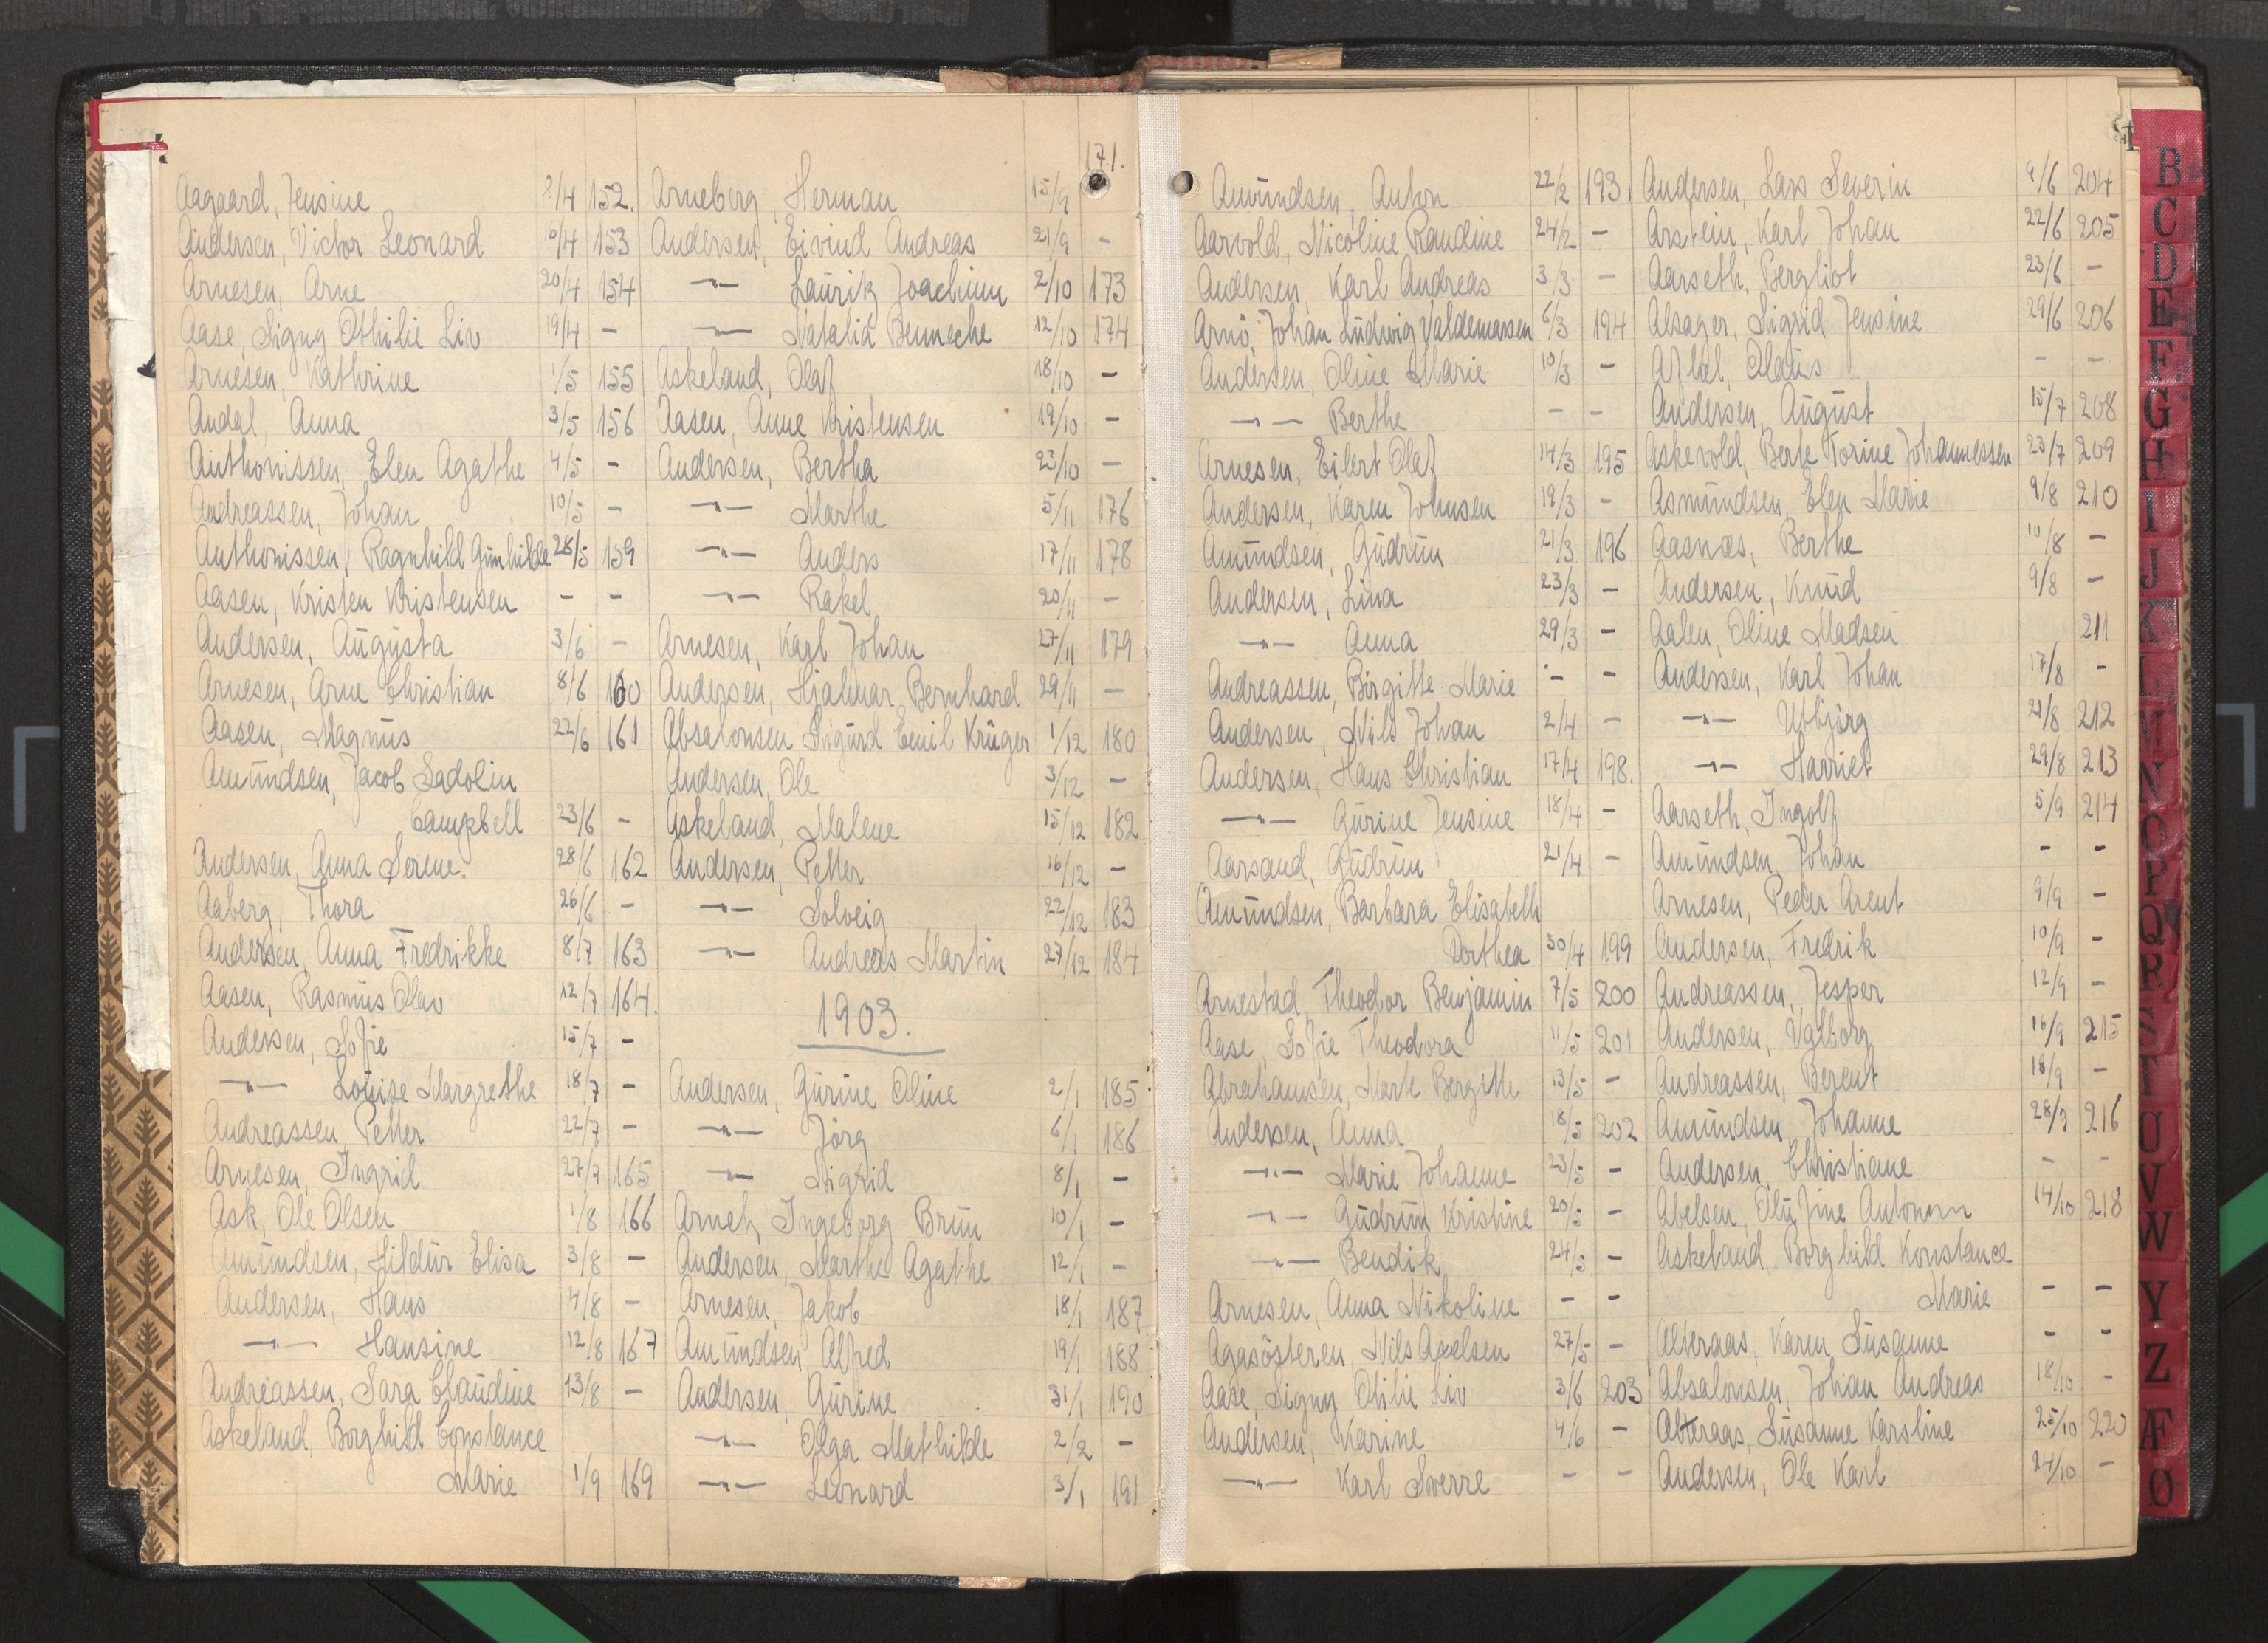 Aagaard, Jensine 8/4 152.
Andersen, Victor Leonard 10/4 153
Arnesen, Arne 20/4 154
Aase, Signy Othilie Liv 19/4 –
Arnesen, Kathrine 1/5 155
Andal, Anna 3/5 156
Anthonissen, Elen Agathe 4/5 –
Andreassen, Johan 10/5 –
Anthonissen, Ragnhild Gunhilde 28/5 159
Aasen, Kristen Kristensen – –
Andersen, Augusta 3/6 –
Arnesen, Arne Christian 8/6 160
Aasen, Magnus 22/6 161
Amundsen, Jacob Sadolin
Campbell 23/6 –
Andersen, Anna Serene. 28/6 162
Aaberg, Thora 26/6 –
Andersen, Anna Fredrikke 8/7 163
Aasen, Rasmus Olav 12/7 164.
Andersen, Sofie 15/7 –
–"– Louise Margrethe 18/7 –
Andreassen, Petter 22/7 –
Arnesen, Ingrid 27/7 165
Ask, Ole Olsen 1/8 166
Amundsen, Hildur Elisa 3/8 –
Andersen, Hans 4/8 –
–"– Hansine 12/8 167
Andreassen, Sara Claudine 13/8 –
Askeland, Borghild Constance
Marie 1/9 169
171.
Arneberg, Herman 15/9
Andersen, Eivind Andreas 21/9 –
–"– Lauritz Joachim 2/10 173
–"– Natalia Benneche 12/10 174
Askeland, Olaf 18/10 –
Aasen, Anne Kristensen 19/10 –
Andersen, Bertha 23/10 –
–"– Marthe 5/11 176
–"– Anders 17/11 178
–"– Rakel 20/11 –
Arnesen, Karl Johan 27/11 179
Andersen, Hjalmar Bernhard 29/11 –
Absalonsen Sigurd Emil Krüger 1/12 180
Andersen, Ole 3/12 –
Askeland, Malene 15/12 182
Andersen, Petter 16/12 –
–"– Solveig 22/12 183
–"– Andreas Martin 27/12 184
1903.
Andersen, Gurine Oline 2/1 185
–"– Jörg 6/1 186
–"– Sigrid 8/1 –
Arnetz, Ingeborg Brun 10/1 –
Andersen, Marthe Agathe 12/1 –
Arnesen, Jakob 18/1 187
Amundsen, Alfred 19/1 188
Andersen, Gurine 31/1 190
–"– Olga Mathilde 2/2 –
–"– Leonard 3/1 191
Amundsen, Anton 22/2 193.
Aarvold, Nicoline Randine 24/2 –
Andersen, Karl Andreas 3/3 –
Arnö, Johan Ludwig Valdemarsen 6/3 194
Andersen, Oline Marie 10/3 –
–"– Berthe – –
Arnesen, Eilert Olaf 14/3 195
Andersen, Karen Johnsen 19/3 –
Amundsen, Gudrun 21/3 196
Andersen, Lina 23/3 –
–"– Anna 29/3 –
Andreassen, Birgitte Marie – –
Andersen, Nils Johan 2/4 –
Andersen, Hans Christian 17/4 198.
–"– Gurine Jensine 18/4 –
Aarsand, Gudrun 21/4 –
Amundsen, Barbara Elisabeth
Dorthea 30/4 199
Arnestad, Theodor Benjamin 7/5 200
Aase, Sofie Theodora 11/5 201
Abrahamsen, Marte Bergitte 13/5 –
Andersen, Anna 18/5 202
–"– Marie Johanne 23/5 –
–"– Gudrun Kristine 20/5 –
–"– Bendik 24/5 –
Arnesen, Anna Nikoline – –
Agasösteren, Nils Axelsen 27/5 –
Aase, Signy Otilie Liv 3/6 203
Andersen, Karine 4/6 –
–"– Karl Sverre – –
Andersen, Lars Severin 9/6 204
Arstein, Karl Johan 22/6 205
Aarseth, Bergliot 23/6 –
Alsager, Sigrid Jensine 29/6 206
Olaus – –
Andersen, August 15/7 208
Askevold, Berte Torine Johannessen 23/7 209
Asmundsen, Elen Marie 9/8 210
Aasnæs, Berthe 10/8 –
Andersen, Knud 9/8 –
Aalen, Oline Madsen 211
Andersen, Karl Johan 17/8 –
–"– 21/8 212
–"– Harriet 29/8 213
Aarseth, Ingolf 5/9 214
Amundsen, Johan – –
Arnesen, Peder Arent 9/9 –
Andersen, Fredrik 10/9 –
Andreassen, Jesper 12/9 –
Andersen, Valborg 16/9 215
Andreassen, Berent 18/9 –
Amundsen, Johanne 28/9 216
Andersen, Christiane – –
Abelsen, Olufine 14/10 218
Askeland, Borghild Konstance
Marie – –
Alteraas, Karen Susanne – –
Absalonsen, Johan Andreas 18/10 –
Alteraas, Susanne Karoline 25/10 220
Andersen, Ole Karl 24/10 –
B
C
D
E
F
G
H
I
J
K
L
M
N
O
P
Q
R
S
T
U
V
W
Y
Z
Æ
Ø